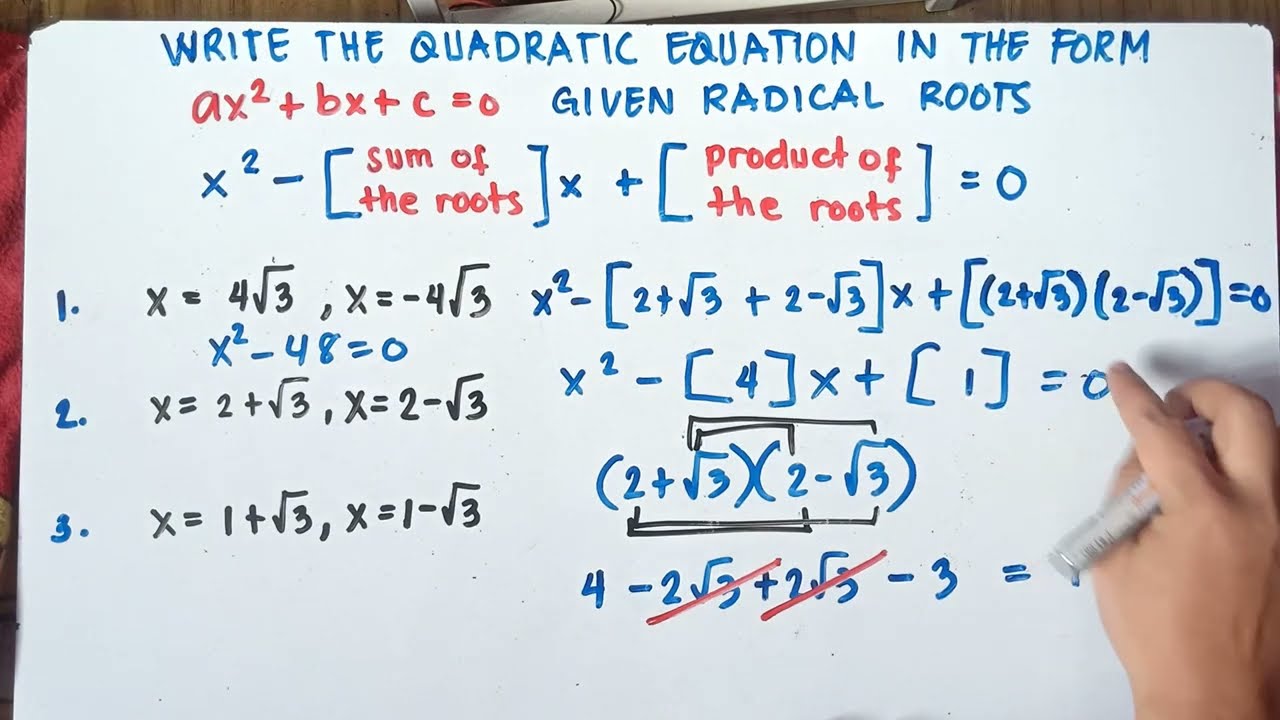 WRITE THE QUADRATIC EQUATION IN THE FORM
ax² + bx + c = 0 GIVEN RADICAL ROOTS
x² - [sum of the roots]x + [product of the roots] = 0
1. x = 4√3 , x = -4√3
x² - 48 = 0
2. x = 2 + √3 , x = 2 - √3
3. x = 1 + √3 , x = 1 - √3
x² - [2 + √3 + 2 - √3]x + [(2 + √3)(2 - √3)] = 0
x² - [4]x + [1] = 0
(2 + √3)(2 - √3)
4 - 2√3 + 2√3 - 3 =